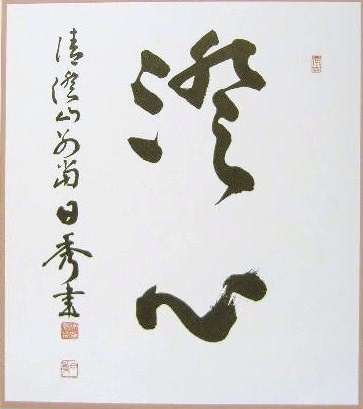 澄心
清澄山別當日秀書